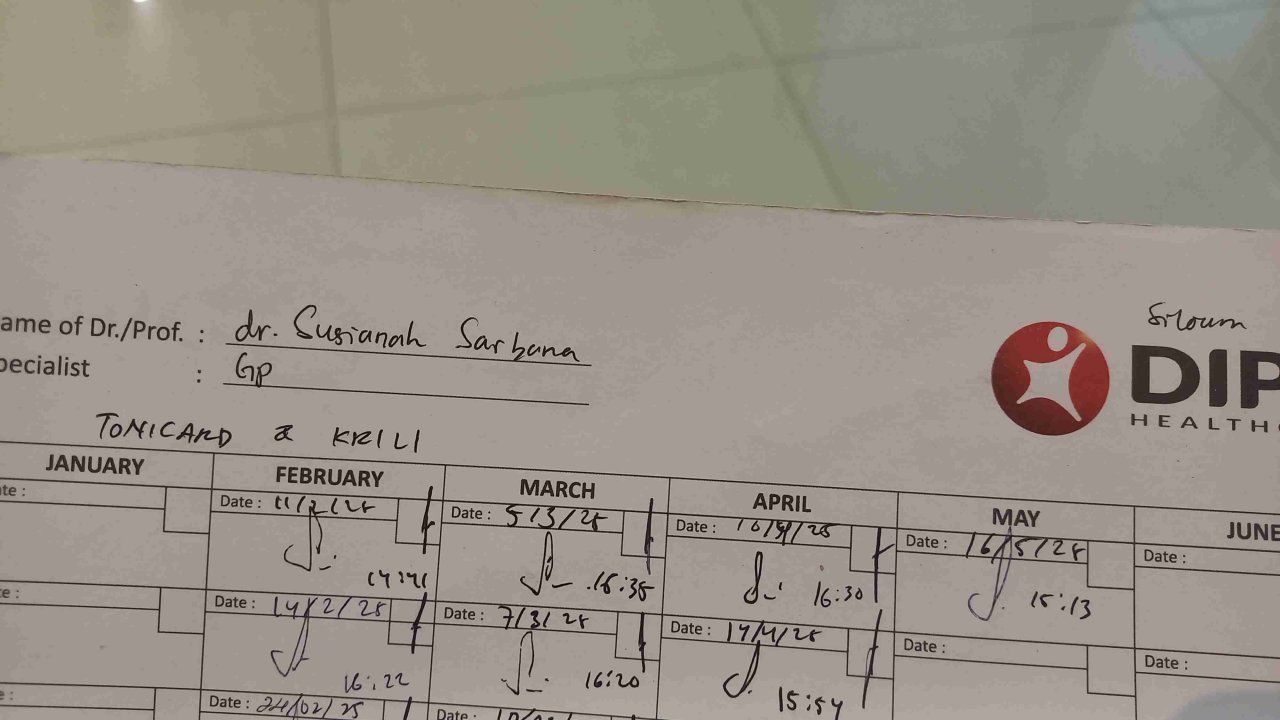 Siloum
ame of Dr./Prof. : dr. Susianah Sarbana
DIP
HEALTHC
pecialist : Gp
TONICARD & KRILI
JANUARY FEBRUARY MARCH APRIL MAY JUNE
te : Date : 11/2/25 Date : 5/3/25 Date : 10/4/25 Date : 16/5/25 Date :
16:35 16:30 15:13
e : Date : 14/2/25 Date : 7/3/25 Date : 17/4/25 Date : Date :
16:22 16:20 15:54
e : Date : 24/02/25 Date :